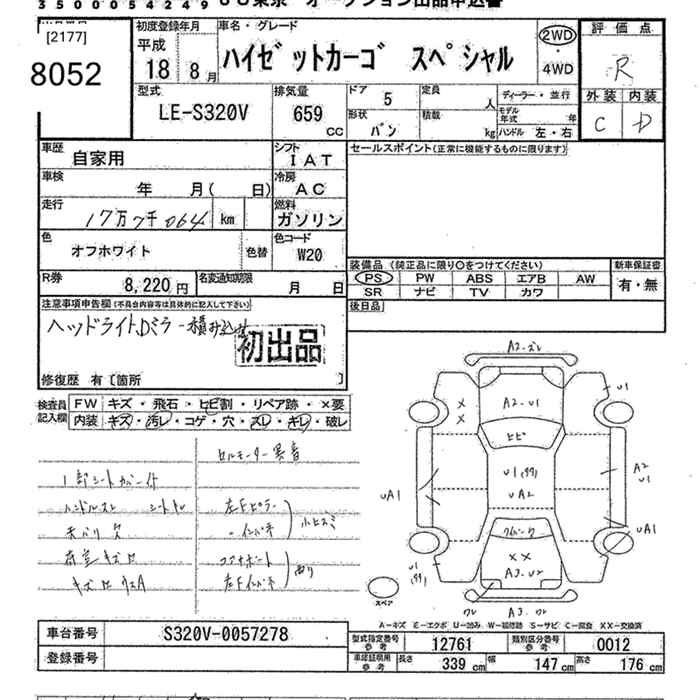 3500054249 JU東京 オークション出品申込書
[2177]
8052
初度登録年月
平成
18 8月
車名・グレード
ハイゼットカーゴ スペシャル
2WD
・
4WD
評価点
R
外装 内装
C D
型式
LE-S320V
排気量
659
CC
ドア 5
形状 バン
定員 人
積載 kg
ディーラー・並行
モデル年式 年
ハンドル 左・右
車歴
自家用
シフト
IAT
セールスポイント(正常に機能するものに限ります)
車検
年 月( 日)
冷房
AC
走行
17万7千064 km
燃料
ガソリン
色
オフホワイト
色替
色コード
W20
装備品(純正品に限り○をつけてください)
新車保証書
PS PW ABS エアB AW
SR ナビ TV カワ
有・無
R券
8,220円
名変通知期限
月 日
後日品
注意事項申告欄(不具合内容等は具体的に記入して下さい)
ヘッドライト、Dミラー積み込み
初出品
修復歴 有[箇所 ]
検査員
記入欄
FW キズ・飛石・ヒビ割・リペア跡・×要
内装 キズ・汚レ・コゲ・穴・スレ・キレ・破レ
セルモーター異音
1部シートカバー付
ハンドルスレ
左Fピラー
・インパネ
荷室キズ
コアサポート
左Fインパネ
A2.ズレ
A2.U1
ヒビ
U1
A2
U1
UA1
UA2
UA1
××
A3.U2
スペア
ワレ A3.ワレ
A-キズ E-エクボ U-凹み W-補修跡 S-サビ C-腐食 XX-交換済
車台番号 S320V-0057278
登録番号
型式指定番号
参考
12761
類別区分番号
参考
0012
車両証明用
参考
長さ 339cm 幅 147cm 高さ 176cm